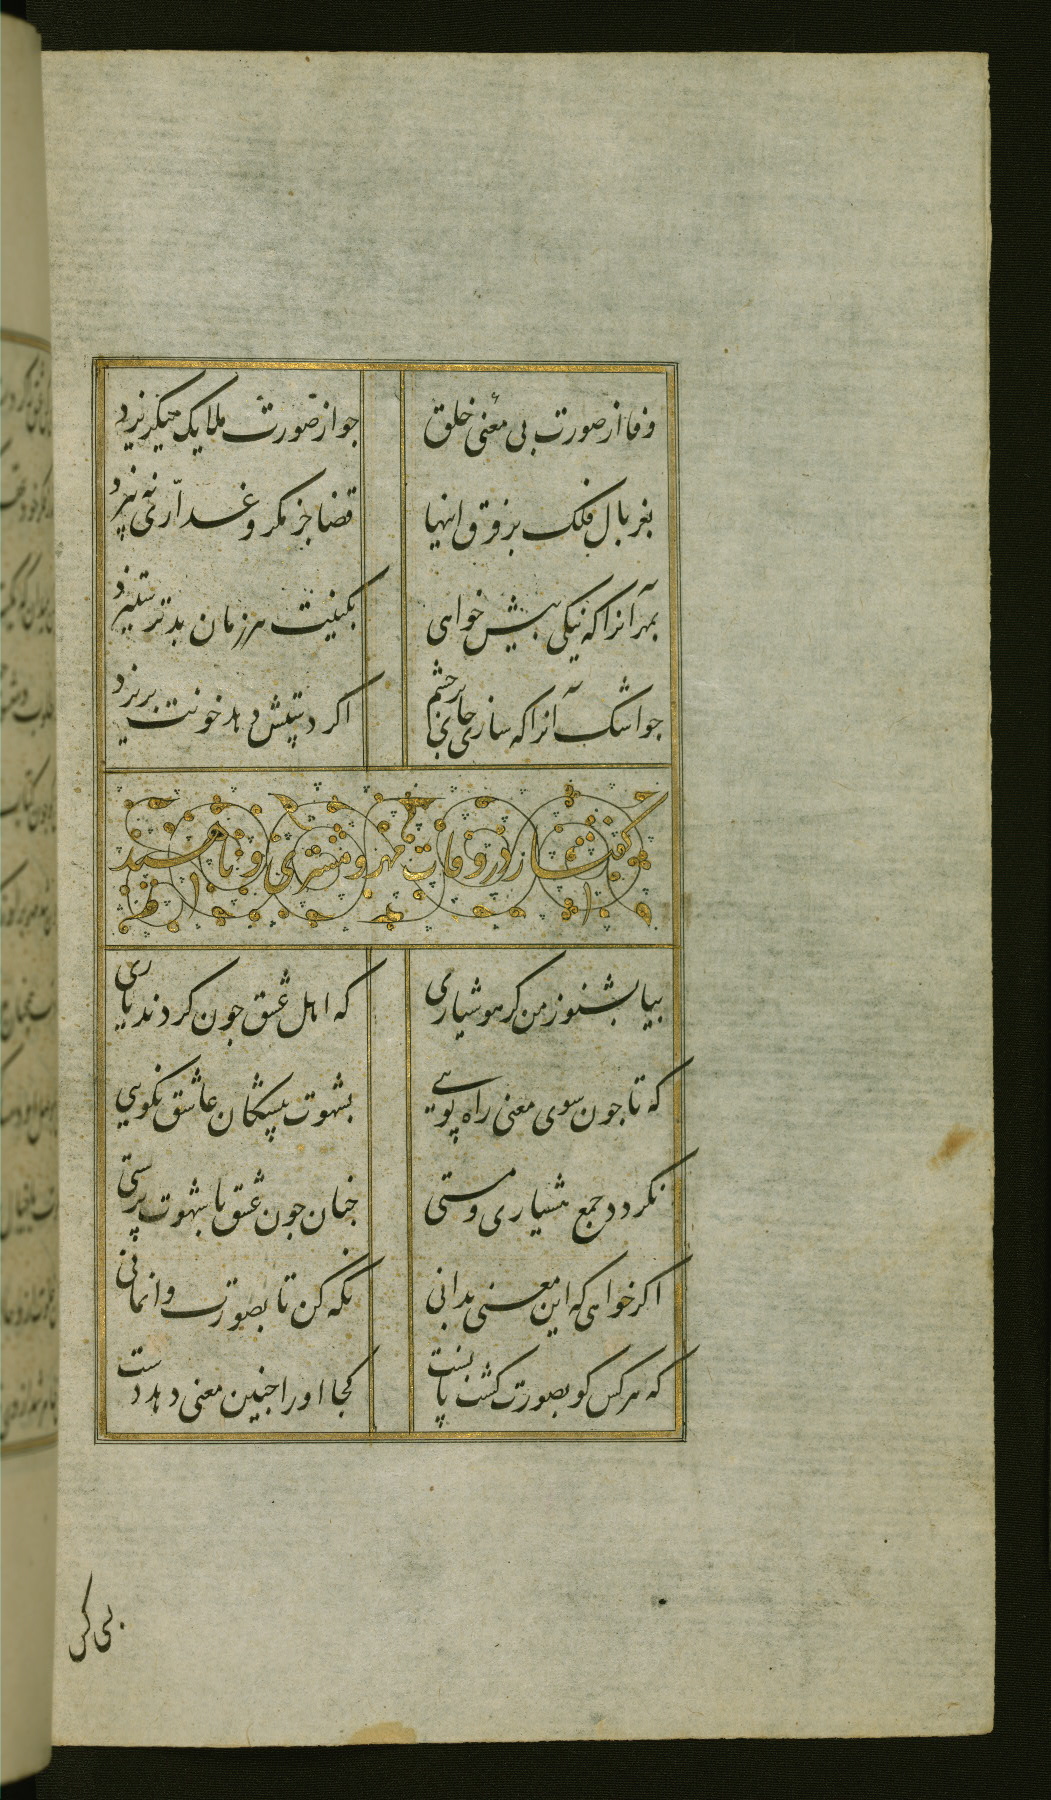 وفا از صورت بی معنی خلق جو از صورت ملایک میکریزد
بغربال فلک بر فرق اینها قضا جز مکر و غداری نه بیزد
بمهر آنرا که نیکی بیش خواهی بکینت هر زمان بدتر ستیزد
جو اشک آنرا که سازی جای بر چشم اکر دستش دهد خونت بریزد
کفتار در وفات مهر و مشتری و ناهید
بیا بشنو ز من کر هوشیاری که اهل عشق جون کردند یاری
که تا جون سوی معنی راه پویی بشهوت پیشکان عاشق نکویی
نکردد جمع هشیاری و مستی جنان جون عشق با شهوت پرستی
اکر خواهی که این معنی بدانی نکه کن تا بصورت وانمانی
که هر کس کو بصورت کشت پابست کجا او را جنین معنی دهد دست
بی کس